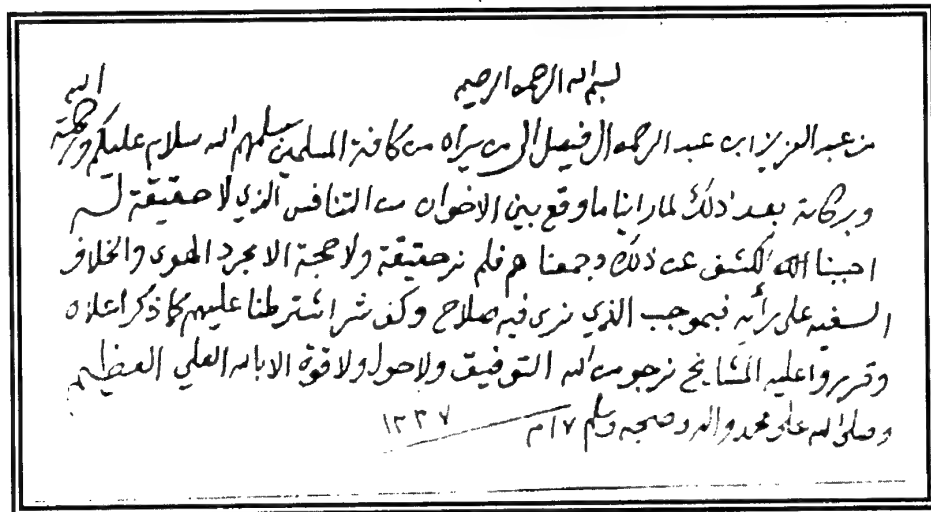 بسم الله الرحمن الرحيم
من عبد العزيز ابن عبد الرحمن ال فيصل الى من يراه من كافة المسلمين سلمهم الله سلام عليكم ورحمة الله
وبركاته بعد ذلك لما راينا ما وقع بين الاخوان من التنافس الذي لا حقيقة له
احببنا الكشف عن ذلك وجمعناهم فلم نر حقيقة ولا حجة الا مجرد الهوى والخلاف
السفيه على فبموجب الذي نرى فيه صلاح وكف شر اشترطنا عليهم كما ذكر اعلاه
وقرروا عليه المشايخ نرجو من الله التوفيق ولا حول ولا قوة الا بالله العلي العظيم
وصلى الله على محمد واله وصحبه وسلم ١٧ م ١٣٣٧